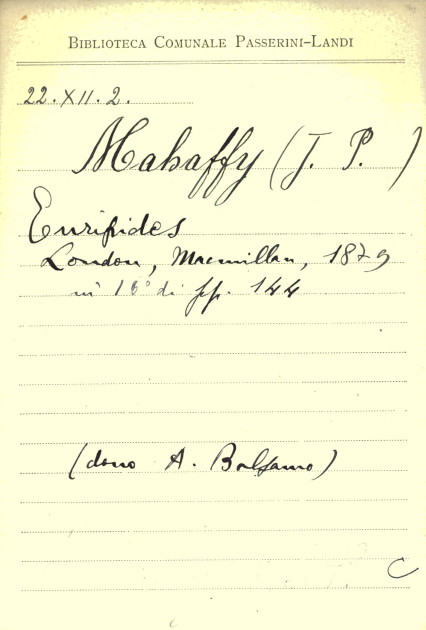 BIBLIOTECA COMUNALE PASSERINI-LANDI
22.XII.2.
Mahaffy (J. P.)
Euripides
London, Macmillan, 1879
in 16° di pp. 144
(dono A. Balsamo)
C